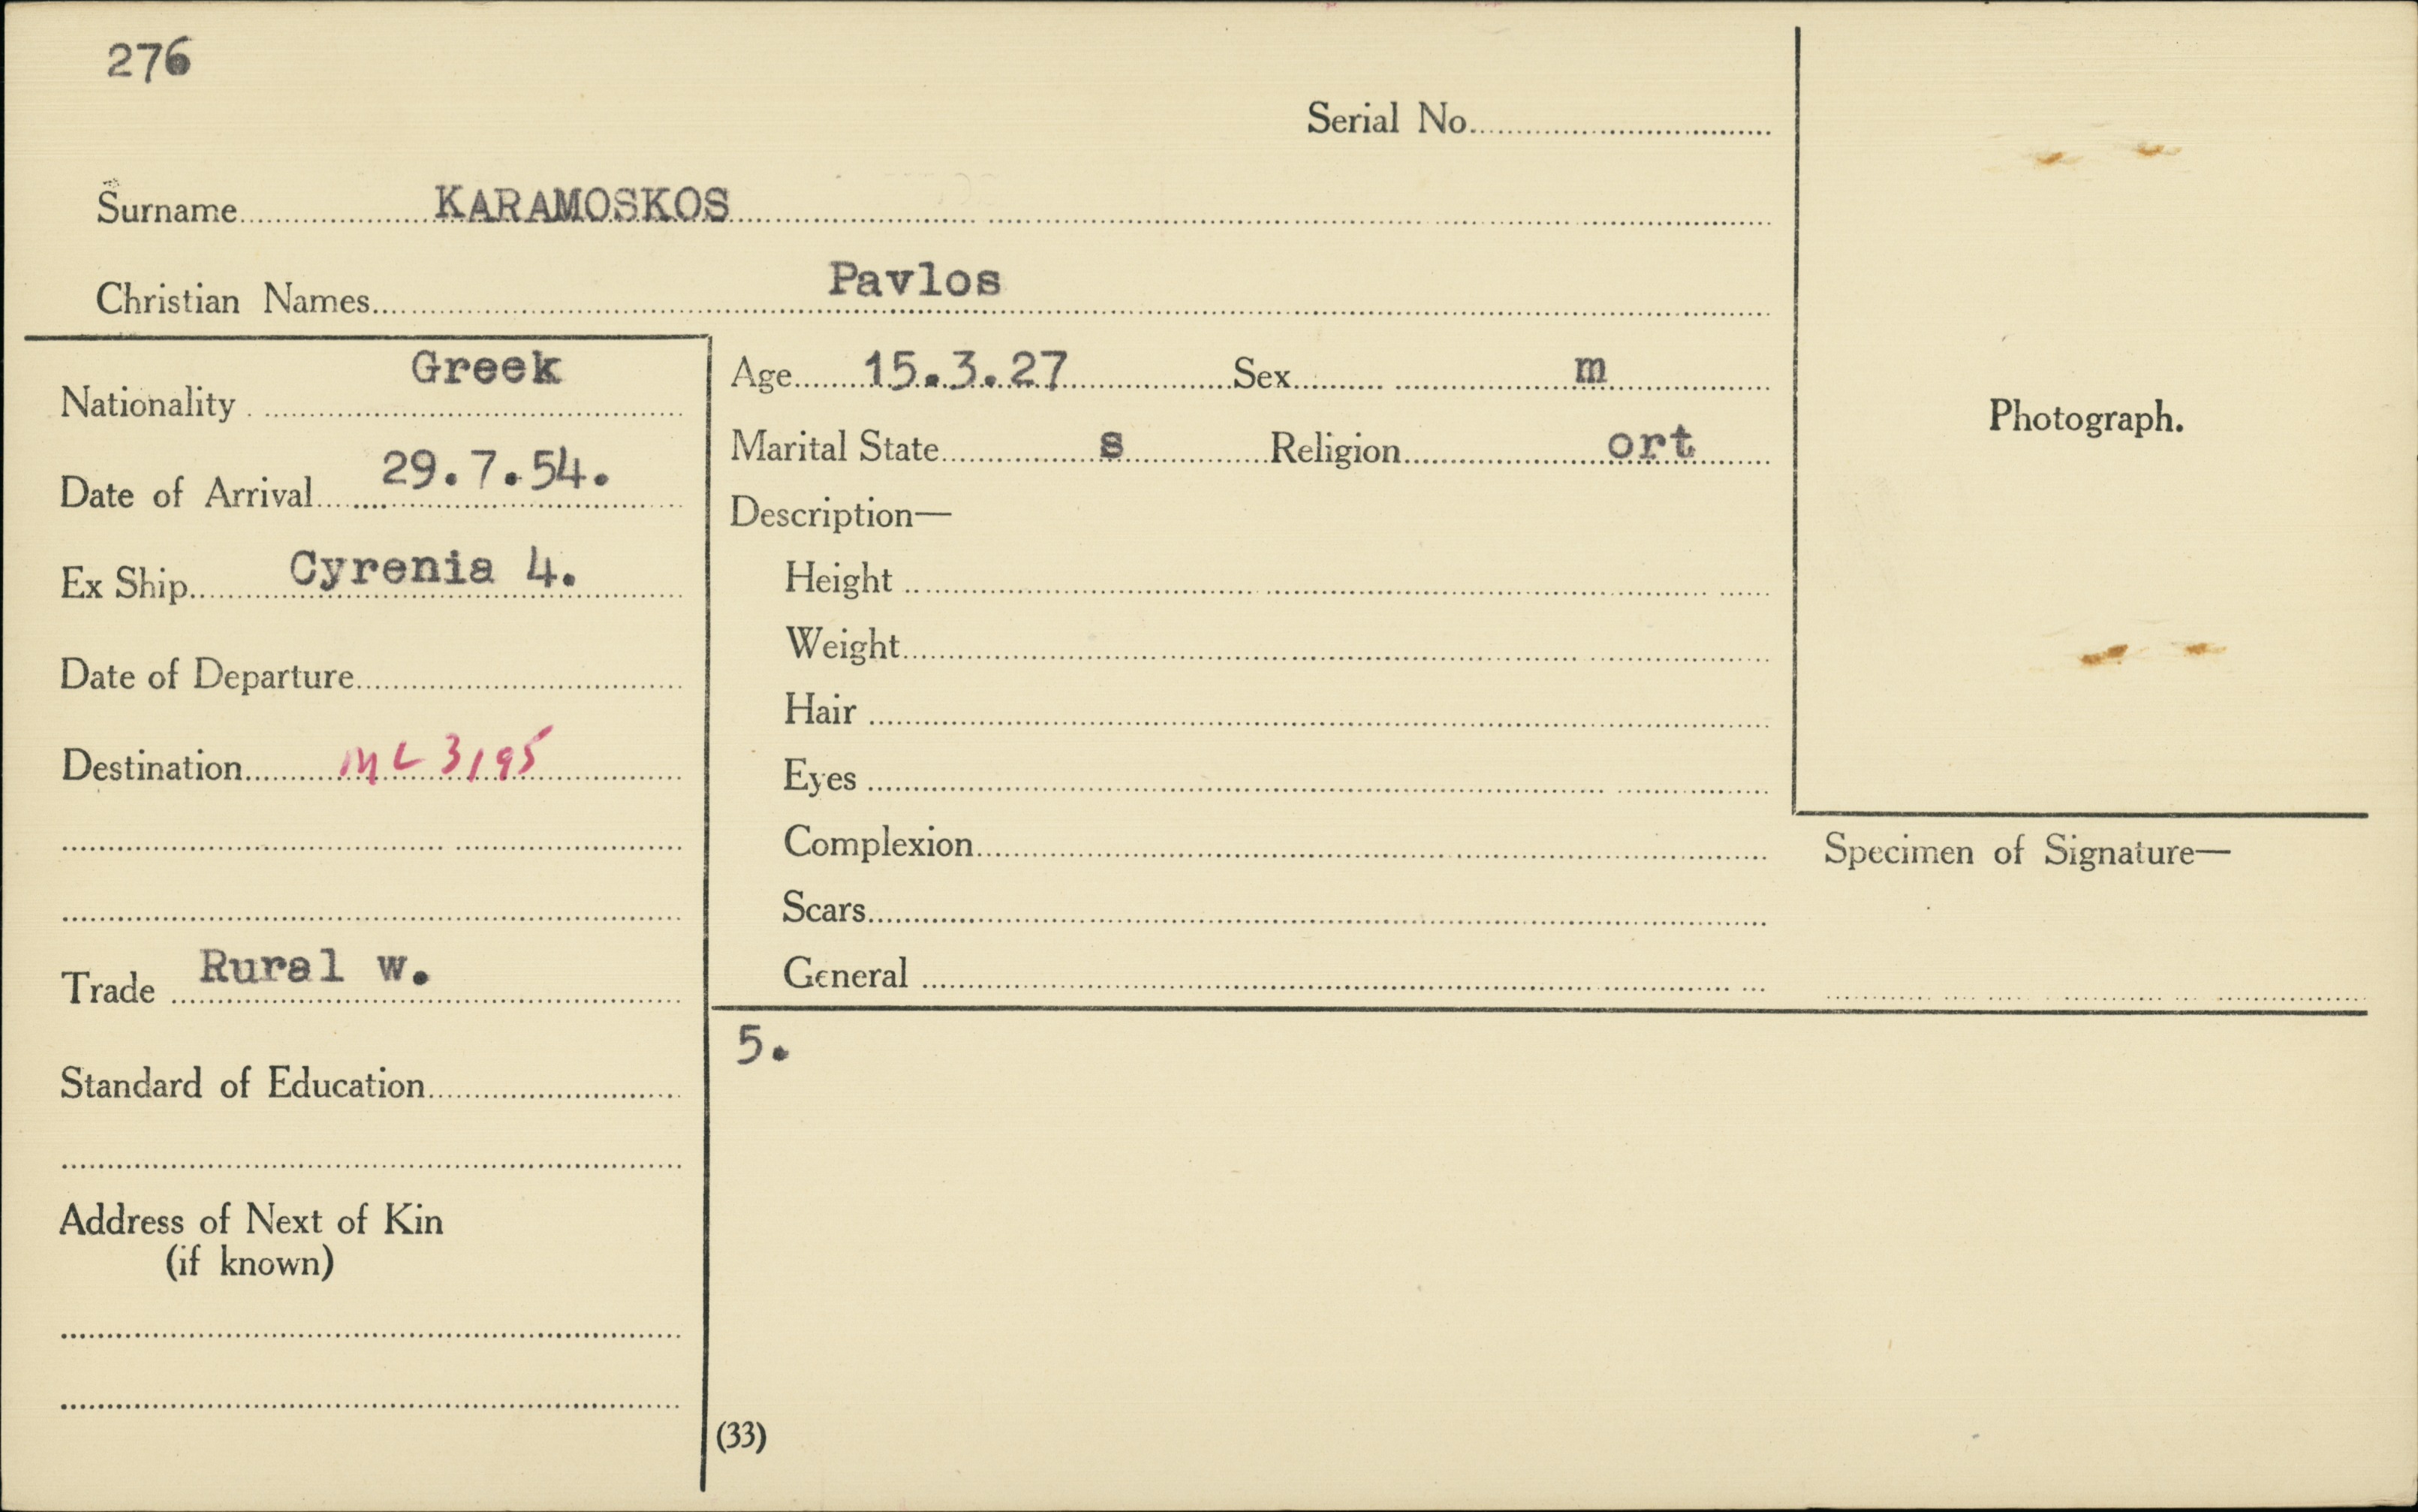 276
Serial No.
Surname KARAMOSKOS
Christian Names Pavlos
Nationality Greek
Date of Arrival 29.7.54.
Ex Ship Cyrenia 4.
Date of Departure
Destination ML 3195
Trade Rural w.
Standard of Education
Address of Next of Kin
(if known)
Age 15.3.27 Sex m
Marital State s Religion ort
Description—
Height
Weight
Hair
Eyes
Complexion
Scars
General
Photograph.
Specimen of Signature—
5.
(33)